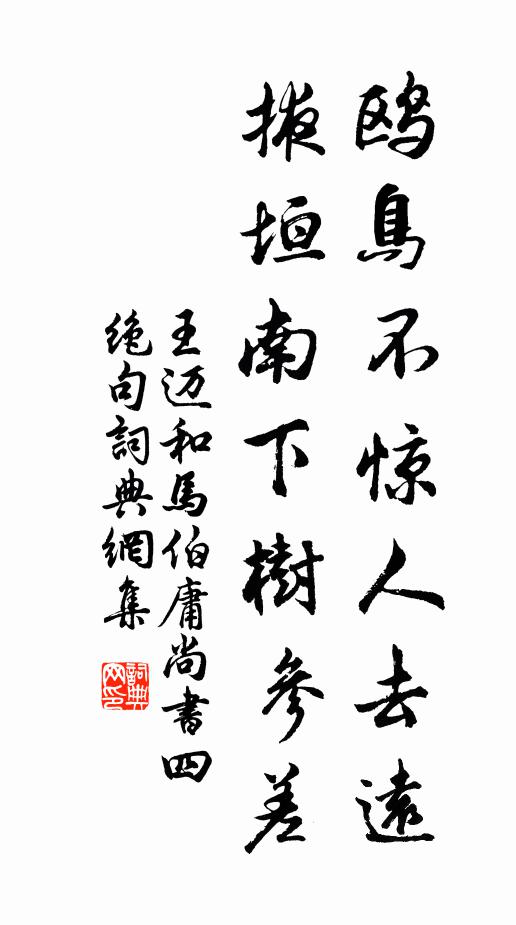 鸥鳥不惊人去遠
掖垣南下樹參差
王迈和馬伯庸尚書四
绝句詞典網集
詞典
网印